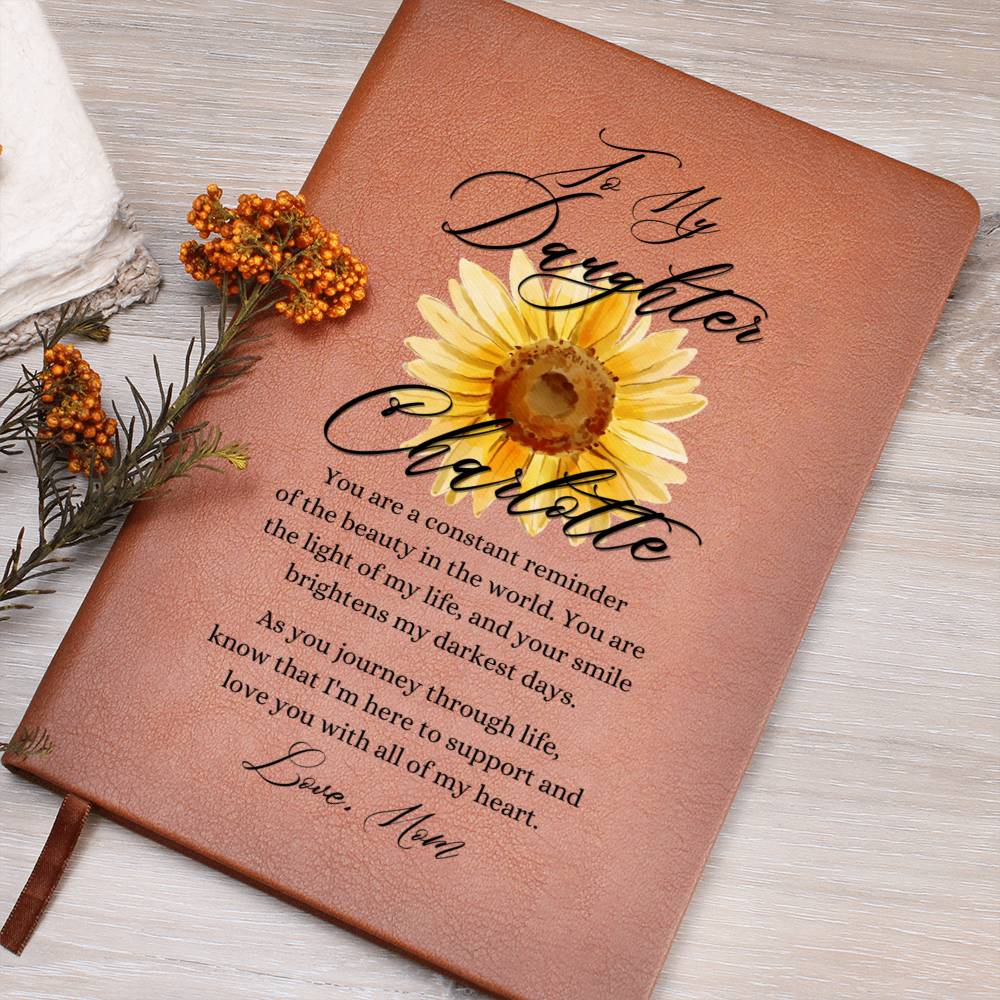 To My
Daughter
Charlotte
You are a constant reminder
of the beauty in the world. You are
the light of my life, and your smile
brightens my darkest days.
As you journey through life,
know that I'm here to support and
love you with all of my heart.
Love, Mom